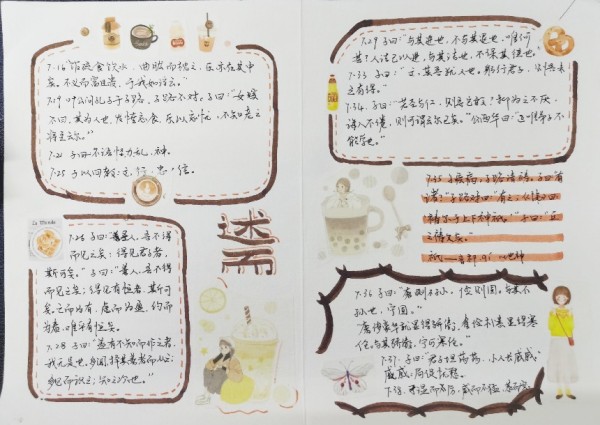 7.16 "饭疏食饮水,曲肱而枕之,乐亦在其中
矣。不义而富且贵,于我如浮云。"
7.19 叶公问孔子于子路,子路不对。子曰:"女奚
不曰,其为人也,发愤忘食,乐以忘忧,不知老之
将至云尔。"
7.21 子不语怪力乱,神。
7.25 子以四教:文,行,忠,信。
7.26 子曰:"圣人,吾不得
而见之矣;得见君子者,
斯可矣。"子曰:"善人,吾不得
而见之矣;得见有恒者,斯可
矣。亡而为有,虚而为盈,约而
为泰,难乎有恒矣。
7.28 子曰:"盖有不知而作之者,
我无是也。多闻,择其善者而从之;
多见而识之;知之次也。"
述而
La Monda
7.29 子曰:"与其进也,不与其退也,唯何
甚?人洁己以进,与其洁也,不保其往也。"
7.33 子曰:"文,莫吾犹人也。躬行君子,则吾未
之有得。"
7.34 子曰:"若圣与仁,则吾岂敢?抑为之不厌,
诲人不倦,则可谓云尔已矣。"公西华曰:"正唯弟子不
能学也。"
7.35 子疾病,子路请祷。子曰:"有
诸?"子路对曰:"有之。
祷尔于上下神祇。"子曰:"丘
之祷久矣。"
7.36 子曰:"奢则不孙,俭则固。与其不
孙也,宁固。"
7.37 子曰:"君子坦荡荡,小人长戚戚。"
7.38 子温而厉,威而不猛,恭而安。